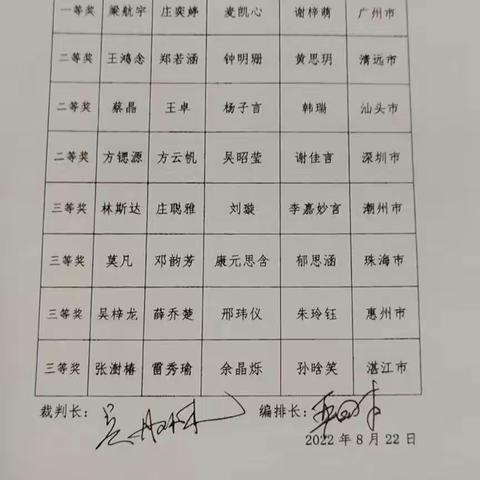 一等奖 梁航宇 庄奕婷 麦凯心 谢梓萌 广州市
二等奖 王鸿念 郑若涵 钟明珊 黄思玥 清远市
二等奖 蔡晶 王卓 杨子言 韩瑞 汕头市
二等奖 方锶源 方云帆 吴昭莹 谢佳言 深圳市
三等奖 林斯达 庄聪雅 刘璇 李嘉妙言 潮州市
三等奖 莫凡 邓韵芳 康元思含 郁思涵 珠海市
三等奖 吴梓龙 薛乔楚 邢玮仪 朱玲钰 惠州市
三等奖 张澍椿 雷秀瑜 余晶烁 孙晗笑 湛江市
裁判长： 编排长：
2022 年 8 月 22 日